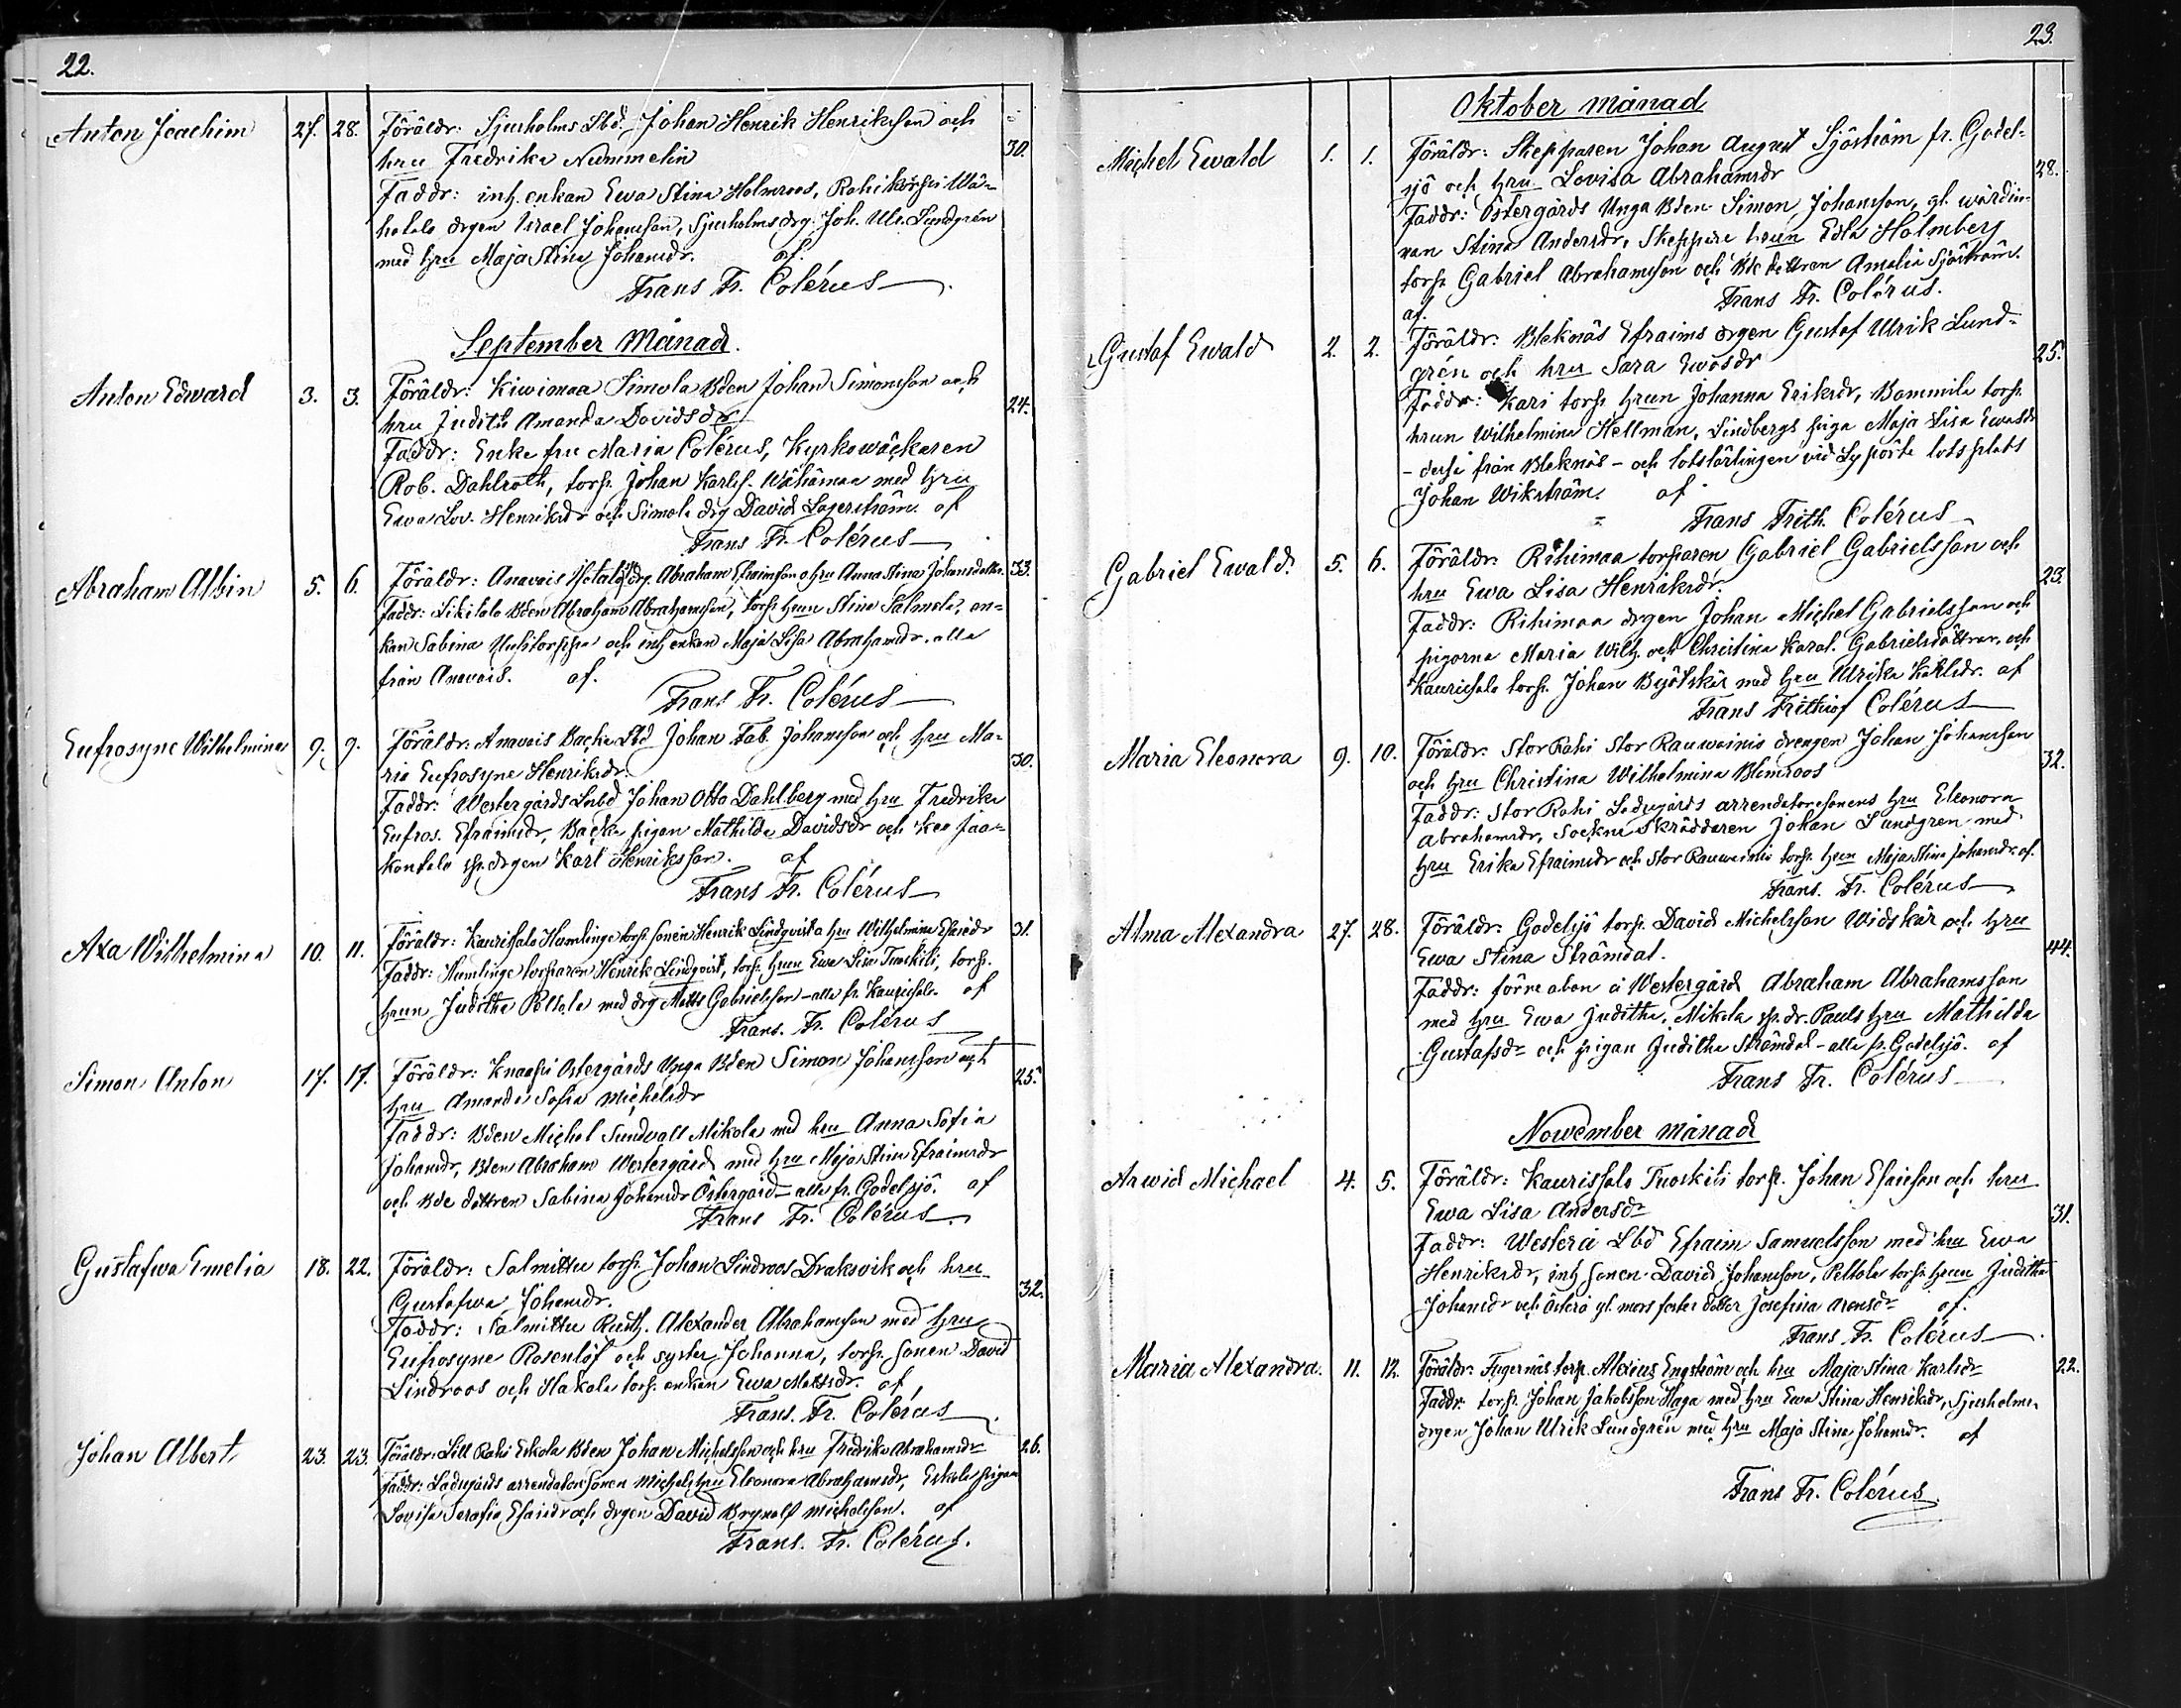 22.
Anton Joachim 27. 28. Föräldr: Sjusholms Lbd. Johan Henrik Henriksson och
hru Fredrika Nummelin 30.
Faddr: inh. enkan Ewa Stina Holmroos, Rahikorpi Wä-
hatalo drgen Israel Johansson, Sjusholms drg. Joh. Ulr. Lundgrén
med hru Maja Stina Johansdr. af.
Frans Fr. Colérus
September Månad.
Anton Edward 3. 3. Föräldr: Kiwimaa Simola Bden Johan Simonsson och
hru Judith Amanda Davidsdr 24.
Faddr: Enke fru Maria Colérus, Kyrkowäckaren
Rob. Dahlroth, torp. Johan Karlss. Wähämaa med hru
Ewa Lov. Henriksdr och Simola drg David Lagerström. af
Frans Fr. Colérus
Abraham Albin 5. 6. Föräldr: Anavais drg. Abraham Efraimson o hru Anna Stina Johansdotter 33.
Faddr: Sikitalo Bden Abraham Abrahamsson, torp. hrun Stina Salmela, en-
kan Sabina Uusitorppa och inh enkan Maja Lisa Abrahamsdr. alla
från Anavais. af.
Frans Fr. Colérus
Eufrosyne Wilhelmina 9. 9. Föräldr: Anavais Backa Lbd Johan Fab. Johansson och hru Ma-
ria Eufrosyne Henriksdr. 30.
Faddr: Westergårds Lbd Johan Otto Dahlberg med hru Fredrika
Eufros. Efraimsdr, Backa pigan Mathilda Davidsdr och Jaa-
kontalo drgen Karl Henriksson. af
Frans Fr. Colérus
Axa Wilhelmina 10. 11. Föräldr: Kaurissalo Humlinge torp. sonen Henrik Lindqvist o hru Wilhelmina Esaiedr 31.
Faddr: Humlinge torparen Henrik Lindqvist, torp. hrun Ewa Lisa Tuoskili, torp.
hrun Juditha Peltola med drg Matts Gabrielsson - alla fr. Kaurissalo. af
Frans. Fr. Colérus
Simon Anton 17. 17. Föräldr: Knaapi Östergårds Unga Bden Simon Johansson och
hru Amanda Sofia Michelsdr 25.
Faddr: Bden Michel Sundvall Mikola med hru Anna Sofia
Johansdr, Bden Abraham Westergård med hru Maja Stina Efraimsdr
och Bde dottren Sabina Johansdr Östergård - alla fr. Godelsjö. af
Frans Fr. Colérus
Gustafwa Emelia 18. 22. Föräldr: Salmittu torp. Johan Lindroos Draksvik och hru
Gustafwa Johansdr. 32.
Faddr: Salmittu Rusth. Alexander Abrahamsson med hru
Eufrosyne Rosenlöf och syster Johanna, torp. sonen David
Lindroos och Hakola torp. enkan Ewa Mattsdr. af
Frans. Fr. Colérus
Johan Albert 23. 23. Föräldr: Lill Rahi Eskola Bden Johan Michelsson och hru Fredrika Abrahamsdr 26.
Faddr: Ladugårds arrendator sonen Michel, hru Eleonora Abrahamsdr, Eskola pigan
Lovisa Serafia Esaiedr och drgen David Brynolf Michelsson. af
Frans. Fr. Colérus.
23.
Oktober månad
Michel Ewald 1. 1. Föräldr: Skepparen Johan August Sjöström fr. Godel-
sjö och hru Lovisa Abrahamsdr 28.
Faddr: Östergårds Unga Bden Simon Johansson, gl. wärdin-
nan Stina Andersdr, Skeppare hrun Edla Holmberg
torp. Gabriel Abrahamsson och Bde dottren Amalia Sjöström.
af. Frans Fr. Colérus.
Gustaf Ewald 2. 2. Föräldr: Bleknäs Efraims drgen Gustaf Ulrik Lund-
grén och hru Sara Ewasdr 25.
Faddr: Kari torp. hrun Johanna Eriksdr, Bammila torp.
hrun Wilhelmina Hellman, Lindbergs piga Maja Lisa Ewasdr
- dessa från Bleknäs - och lotslärlingen vid Lypörtö lotsplats
Johan Wikström. af
Frans Frith. Colérus
Gabriel Ewald. 5. 6. Föräldr: Rihimaa torparen Gabriel Gabrielsson och
hru Ewa Lisa Henriksdr. 23.
Faddr: Rihimaa drgen Johan Michel Gabrielsson och
pigorna Maria Wilh. och Christina Karol. Gabrielsdöttrar, och
Kaurissalo torp. Johan Byötskär med hru Ulrika Karlsdr. af
Frans Frithiof Colérus
Maria Eleonora 9. 10. Föräldr: Stor Rahi Stor Rauwoinis drengen Johan Johansson
och hru Christina Wilhelmina Blomroos 32.
Faddr: Stor Rahi Ladugårds arrendatorsonens hru Eleonora
Abrahamsdr, Sockne Skräddaren Johan Lundgren med
hru Erika Efraimsdr och Stor Rauwoinis torp. hrun Maja Stina Johansdr. af.
Frans. Fr. Colérus
Alma Alexandra 27. 28. Föräldr: Godelsjö torp. David Michelsson Widskär och hru
Ewa Stina Strömdal. 44.
Faddr: förre åbon å Westergård Abraham Abrahamsson
med hru Ewa Juditha, Mikola sp. dr. Pauls hru Mathilda
Gustafsdr och pigan Juditha Strömdal - alla fr. Godelsjö. af
Frans Fr. Colérus
November månad
Arwid Michael 4. 5. Föräldr: Kaurissalo Tuoskili torp. Johan Esaieson och hru
Ewa Lisa Andersdr 31.
Faddr: Westerå Lbd Efraim Samuelsson med hru Ewa
Henriksdr, inh sonen David Johansson, Peltola torp. hrun Juditha
Johansdr och Österå gl. mors foster dotter Josefina Aronsdr af.
Frans Fr. Colérus
Maria Alexandra. 11. 12. Föräldr: Fugernäs torp. Alexius Engström och hru Maja Stina Karlsdr 22.
Faddr: torp. Johan Jakobsson Haga med hru Ewa Stina Henriksdr, Sjusholms
drgen Johan Ulrik Lundgrén med hru Maja Stina Johansdr. af
Frans Fr. Colérus